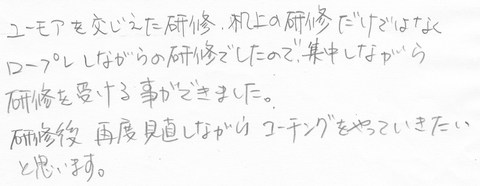 ユーモアを交じえた研修、机上の研修だけではなく
ロープレしながらの研修でしたので、集中しながら
研修を受ける事ができました。
研修後 再度見直しながら コーチングをやっていきたい
と思います。